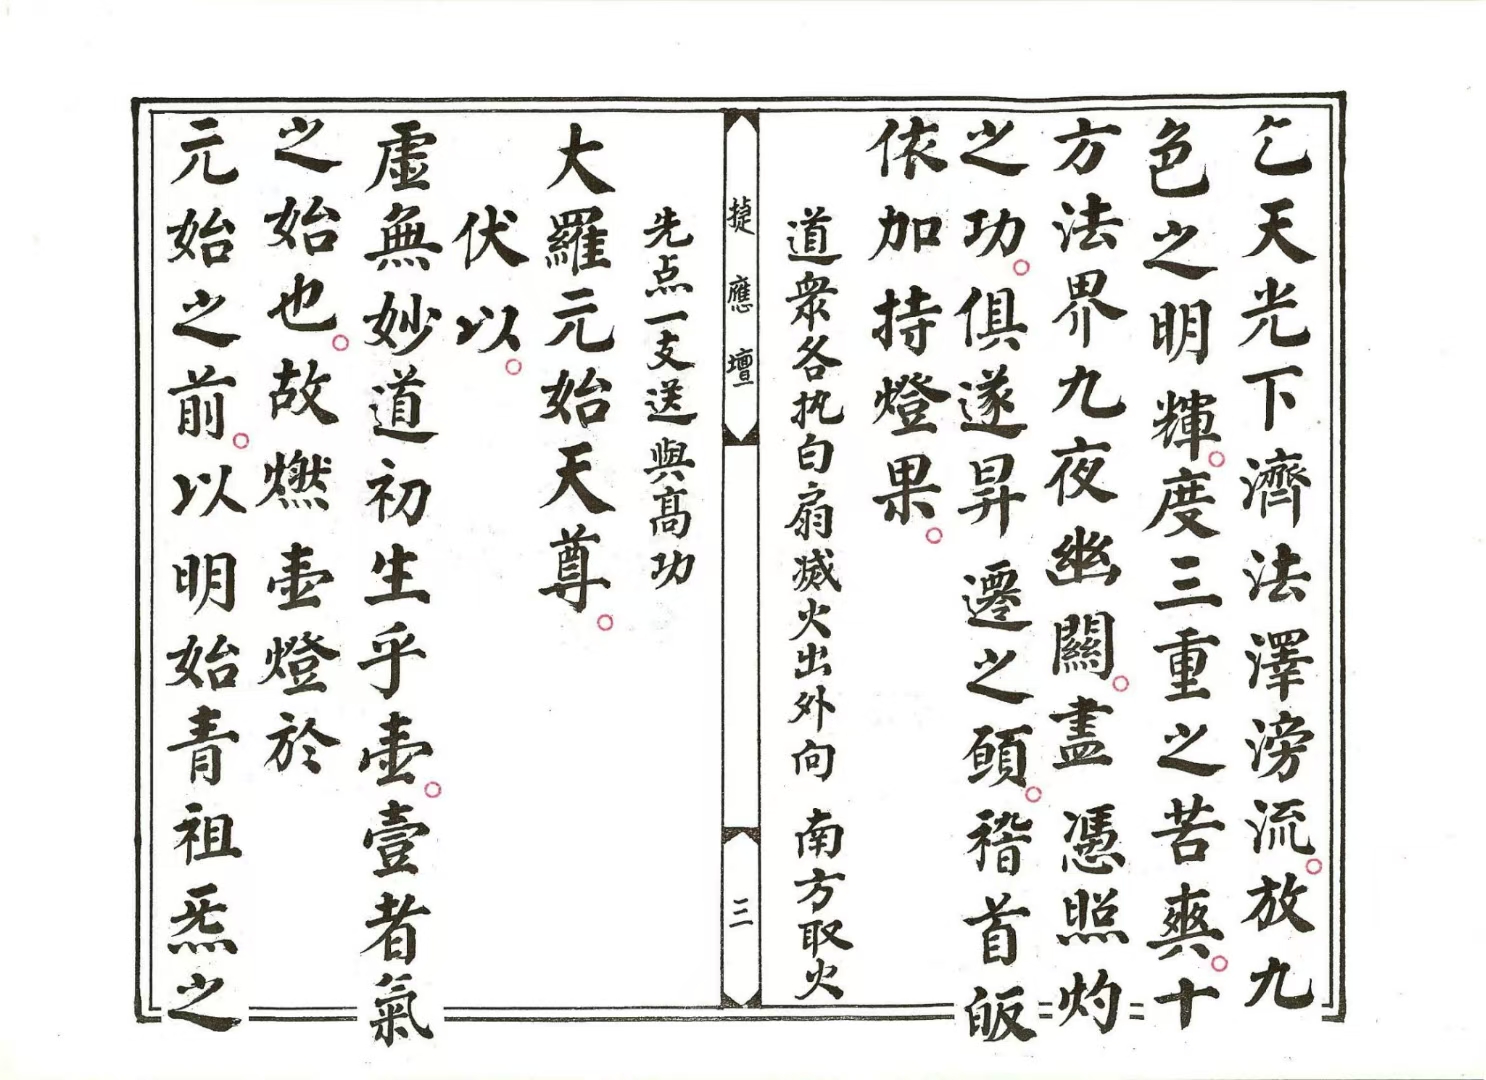 乞天光下濟法澤滂流。放九
色之明輝。度三重之苦爽。十
方法界九夜幽關。盡憑照灼
之功。俱遂昇遷之願。稽首皈
依加持燈果。
道衆各执白扇滅火出外向 南方取火
㨗應壇
三
先点一支送與高功
大羅元始天尊。
伏以。
虛無妙道初生乎壷。壹者氣
之始也。故燃壷燈於
元始之前。以明始青祖炁之